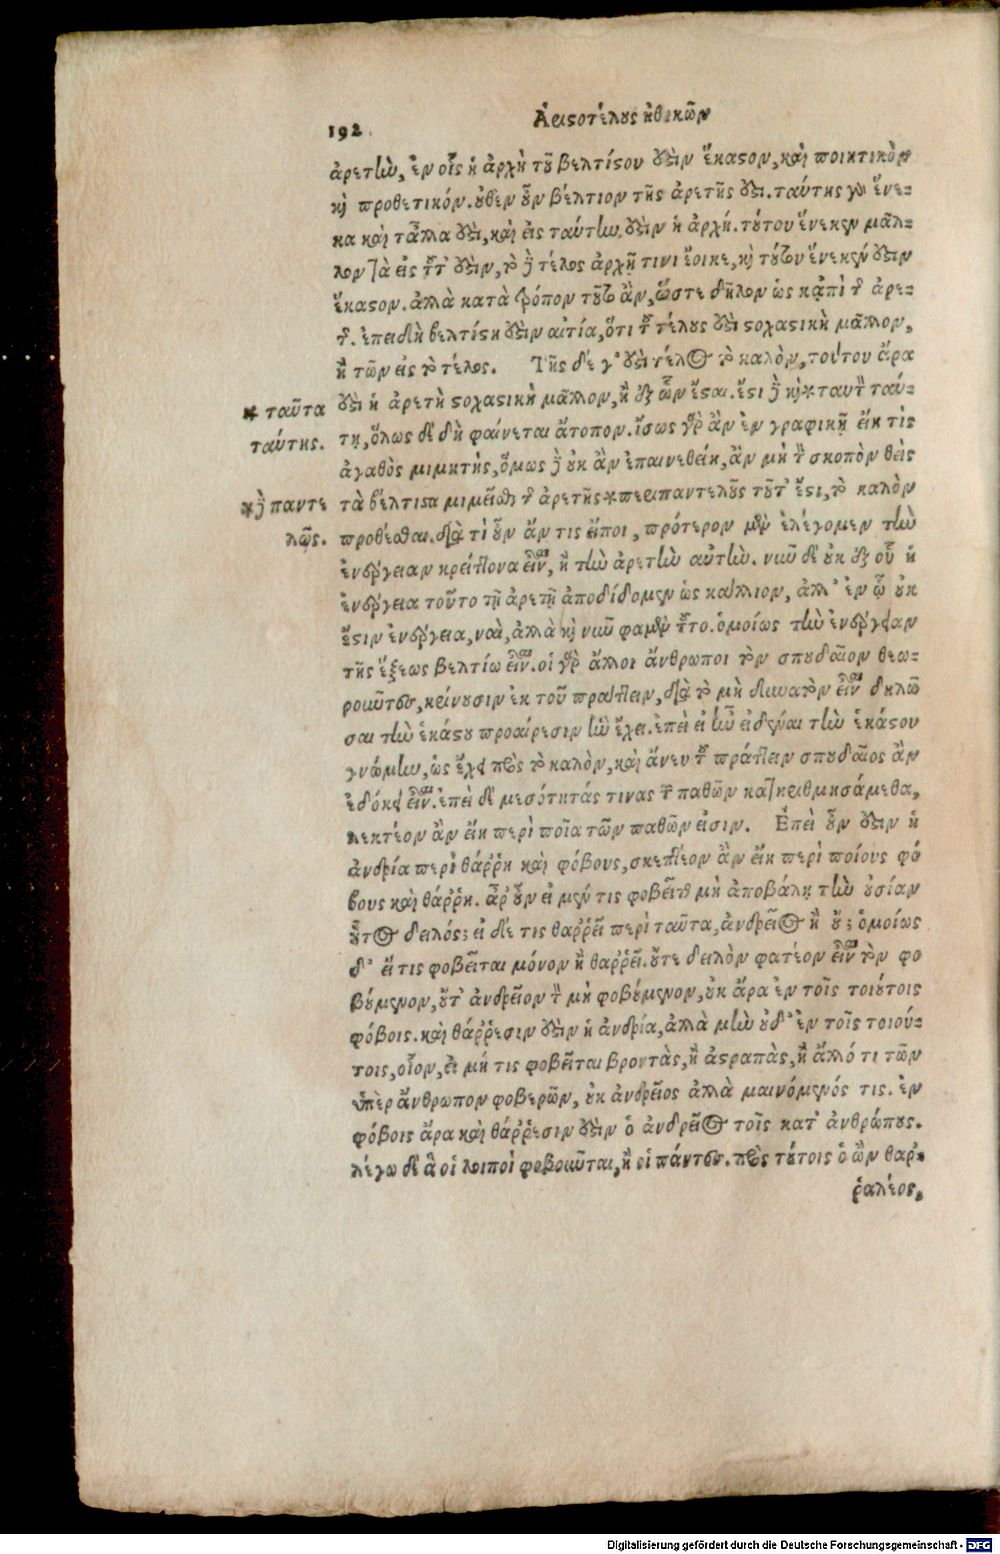 192 Ἀριστοτέλους ἠθικῶν
ἀρετὴν, ἐν οἷς ἡ ἀρχὴ τοῦ βελτίστου ἐστὶν ἕκαστον, καὶ ποιητικὸν
καὶ προθετικόν. οὐθὲν οὖν βέλτιον τῆς ἀρετῆς ἐστι. ταύτης γὰρ ἕνε-
κα καὶ τἆλλα ἐστὶ, καὶ εἰς ταύτην ἐστὶν ἡ ἀρχή. τούτου ἕνεκεν μᾶλ-
λον τὰ εἰς τοῦτ᾽ ἐστὶν, τὸ δὲ τέλος ἀρχῇ τινι ἔοικε, καὶ τούτου ἕνεκέν ἐστιν
ἕκαστον. ἀλλὰ κατὰ τρόπον τοῦτο ἂν, ὥστε δῆλον ὡς κᾀπὶ τῆς ἀρε-
τῆς. ἐπειδὴ βελτίστη ἐστὶν αἰτία, ὅτι τοῦ τέλους ἐστὶ στοχαστικὴ μᾶλλον,
ἢ τῶν εἰς τὸ τέλος. Τῆς δέ γ᾽ ἐστὶ τέλος τὸ καλὸν, τούτου ἄρα
* ταῦτα ἐστὶ ἡ ἀρετὴ στοχαστικὴ μᾶλλον, ἢ ἐξ ὧν ἔσται. ἔστι δὲ καὶ * ταυτὶ ταύ-
ταύτης. τῃ, ὅλως δὲ δὴ φαίνεται ἄτοπον. ἴσως γὰρ ἂν ἐν γραφικῇ εἴη τὶς
ἀγαθὸς μιμητὴς, ὅμως δὲ οὐκ ἂν ἐπαινεθείη, ἂν μὴ τὸν σκοπὸν θεὶς
* δὲ παντε τὰ βέλτιστα μιμεῖσθαι τῆς ἀρετῆς * περιπαντελοῦς τοῦτ᾽ ἔστι, τὸ καλὸν
λῶς. προθέσθαι. διὰ τί οὖν ἄν τις εἴποι, πρότερον μὲν ἐλέγομεν τὴν
ἐνέργειαν κρείττονα εἶναι, ἢ τὴν ἀρετὴν αὐτὴν. νῦν δὲ οὐκ ἐξ οὗ ἡ
ἐνέργεια τοῦτο τῇ ἀρετῇ ἀποδίδομεν ὡς κάλλιον, ἀλλ᾽ ἐν ᾧ οὐκ
ἔστιν ἐνέργεια, ναὶ, ἀλλὰ καὶ νῦν φαμὲν τοῦτο. ὁμοίως τὴν ἐνέργειαν
τῆς ἕξεως βελτίω εἶναι. οἱ γὰρ ἄλλοι ἄνθρωποι τὸν σπουδαῖον θεω-
ροῦντες, κρίνουσιν ἐκ τοῦ πράττειν, διὰ τὸ μὴ δυνατὸν εἶναι δηλῶ
σαι τὴν ἑκάστου προαίρεσιν ἣν ἔχει. ἐπεὶ εἰ ἦν εἰδέναι τὴν ἑκάστου
γνώμην, ὡς ἔχει πρὸς τὸ καλὸν, καὶ ἄνευ τοῦ πράττειν σπουδαῖος ἂν
ἐδόκει εἶναι. ἐπεὶ δὲ μεσότητάς τινας τῶν παθῶν κατηριθμησάμεθα,
λεκτέον ἂν εἴη περὶ ποῖα τῶν παθῶν εἰσιν. Ἐπεὶ οὖν ἐστιν ἡ
ἀνδρία περὶ θάῤῥη καὶ φόβους, σκεπτέον ἂν εἴη περὶ ποίους φό
βους καὶ θάῤῥη. ἆρ᾽ οὖν εἰ μέν τις φοβεῖται μὴ ἀποβάλῃ τὴν οὐσίαν
οὗτος δειλός; εἰ δέ τις θαῤῥεῖ περὶ ταῦτα, ἀνδρεῖος ἢ οὔ; ὁμοίως
δ᾽ εἴ τις φοβεῖται μόνον ἢ θαῤῥεῖ. οὔτε δειλὸν φατέον εἶναι τὸν φο
βούμενον, οὔτ᾽ ἀνδρεῖον τὸν μὴ φοβούμενον, οὐκ ἄρα ἐν τοῖς τοιούτοις
φόβοις. καὶ θάῤῥεσιν ἐστὶν ἡ ἀνδρία, ἀλλὰ μὴν οὐδ᾽ ἐν τοῖς τοιού-
τοις, οἷον, εἰ μή τις φοβεῖται βροντὰς, ἢ ἀστραπὰς, ἢ ἄλλό τι τῶν
ὑπὲρ ἄνθρωπον φοβερῶν, οὐκ ἀνδρεῖος ἀλλὰ μαινόμενός τις. ἐν
φόβοις ἄρα καὶ θάῤῥεσιν ἐστὶν ὁ ἀνδρεῖος τοῖς κατ᾽ ἀνθρώπους.
λέγω δὲ ἃ οἱ λοιποὶ φοβοῦνται, ἢ οἱ πάντες. πρὸς τούτοις ὁ ὢν θαῤ-
ῥαλέος,
Digitalisierung gefördert durch die Deutsche Forschungsgemeinschaft - DFG